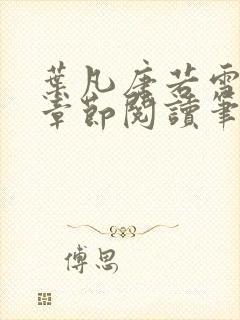 葉凡唐若雪
章節閱讀筆
傅思